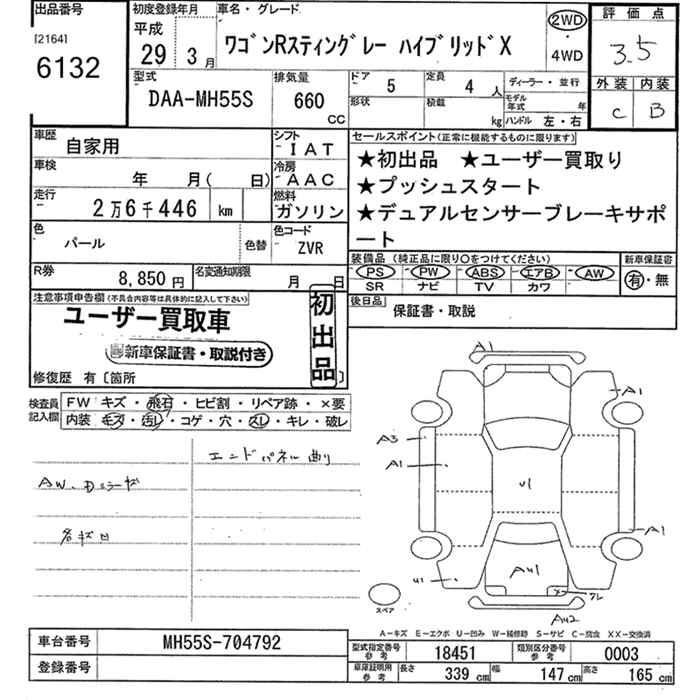 出品番号
[2164]
6132
初度登録年月
平成
29 3月
車名・グレード
ワゴンRスティングレー ハイブリッドX
2WD
・
4WD
評価点
3.5
外装 内装
C B
型式
DAA-MH55S
排気量
660
CC
ドア 5
形状
定員 4 人
積載 kg
ディーラー・並行
モデル年式 年
ハンドル 左・右
車歴 自家用
シフト
IAT
車検 年 月( 日)
冷房
AAC
走行
2万6千446 km
燃料
ガソリン
色
パール
色替
色コード
ZVR
R券
8,850円
名変通知期限
月 日
セールスポイント(正常に機能するものに限ります)
★初出品 ★ユーザー買取り
★プッシュスタート
★デュアルセンサーブレーキサポ
ート
装備品 (純正品に限り○をつけてください)
PS PW ABS エアB AW
SR ナビ TV カワ
新車保証書
有・無
後日品
保証書・取説
注意事項申告欄(不具合内容等は具体的に記入して下さい)
ユーザー買取車
新車保証書・取説付き
初出品
修復歴 有〔箇所
検査員
記入欄
FW キズ・飛石・ヒビ割・リペア跡・×要
内装 キズ・汚レ・コゲ・穴・スレ・キレ・破レ
エンドパネル曲り
各キズ凹
A1
A1
A3
A1
U1
A1
U1
AU1
AU2
スペア
A-キズ E-エクボ U-凹み W-補修跡 S-サビ C-腐食 XX-交換済
車台番号 MH55S-704792
登録番号
型式指定番号
参考
18451
類別区分番号
参考
0003
車庫証明用
参考
長さ 339 cm
幅 147 cm
高さ 165 cm